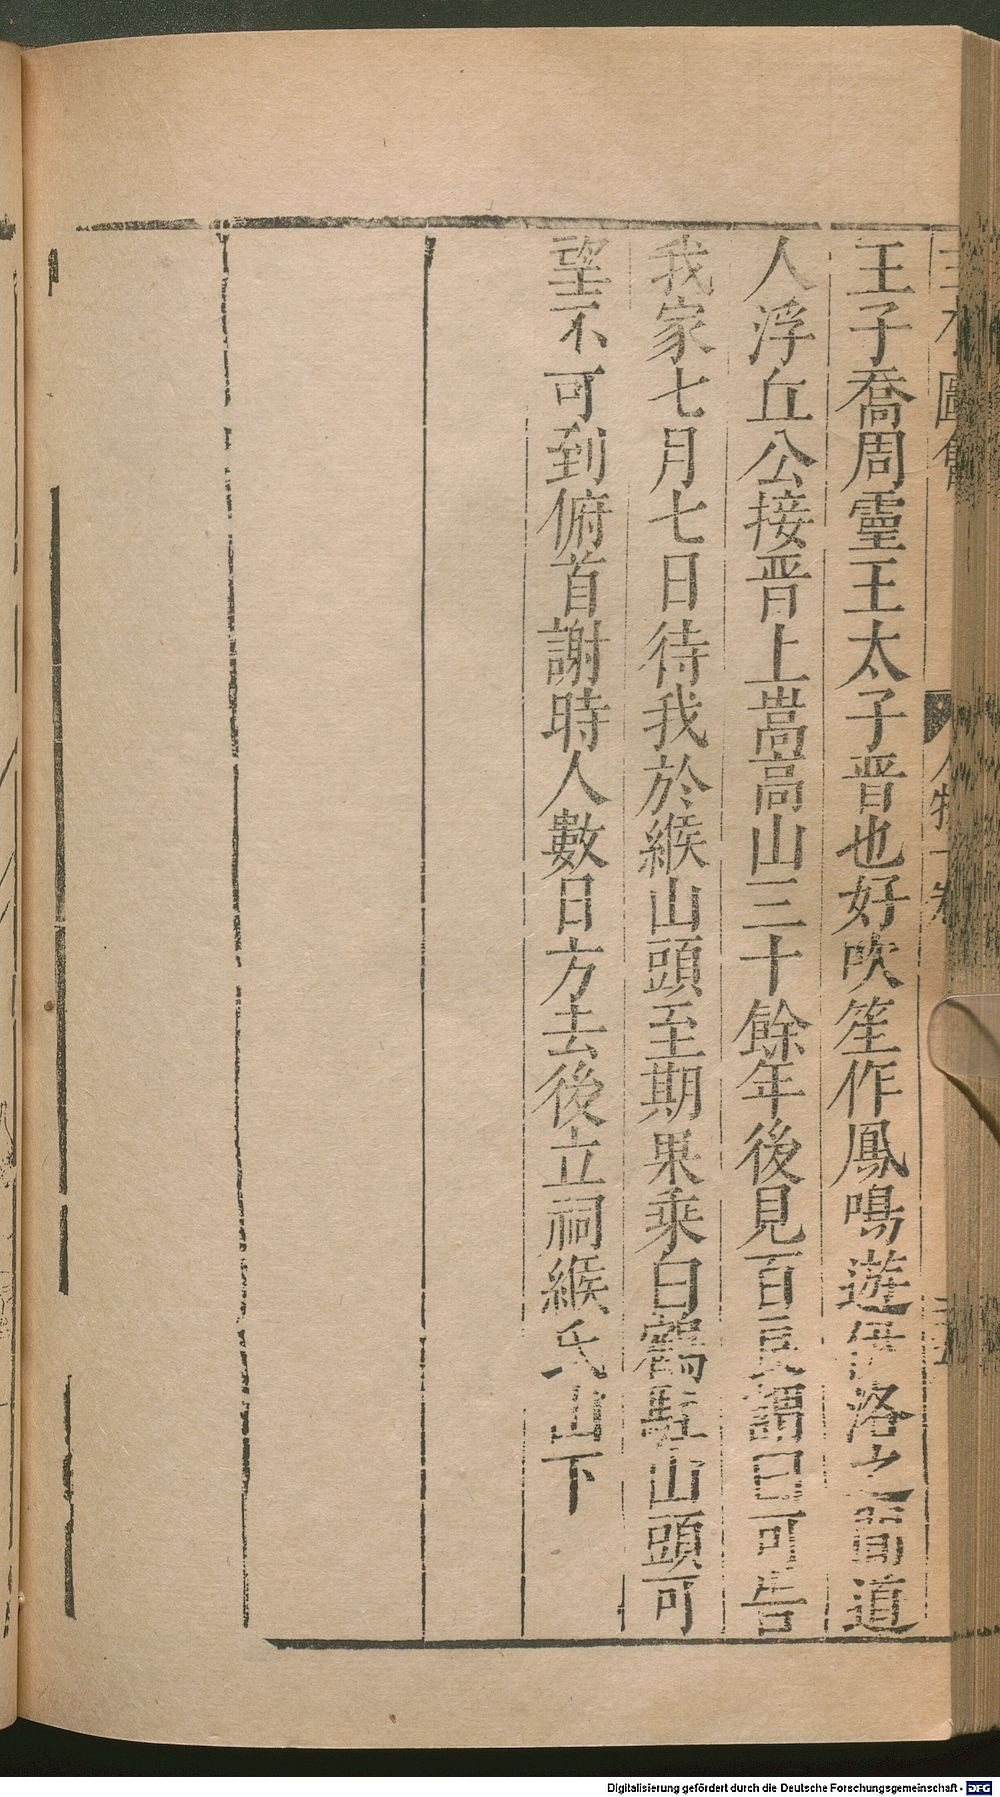 三才圖會 人物十卷
王子喬周靈王太子晋也好吹笙作鳳鳴遊伊洛之間道
人浮丘公接晋上嵩高山三十餘年後見百良謂曰可告
我家七月七日待我於緱山頭至期果乘白鶴駐山頭可
望不可到俯首謝時人數日方去後立祠緱氏山下
Digitalisierung gefördert durch die Deutsche Forschungsgemeinschaft - DFG